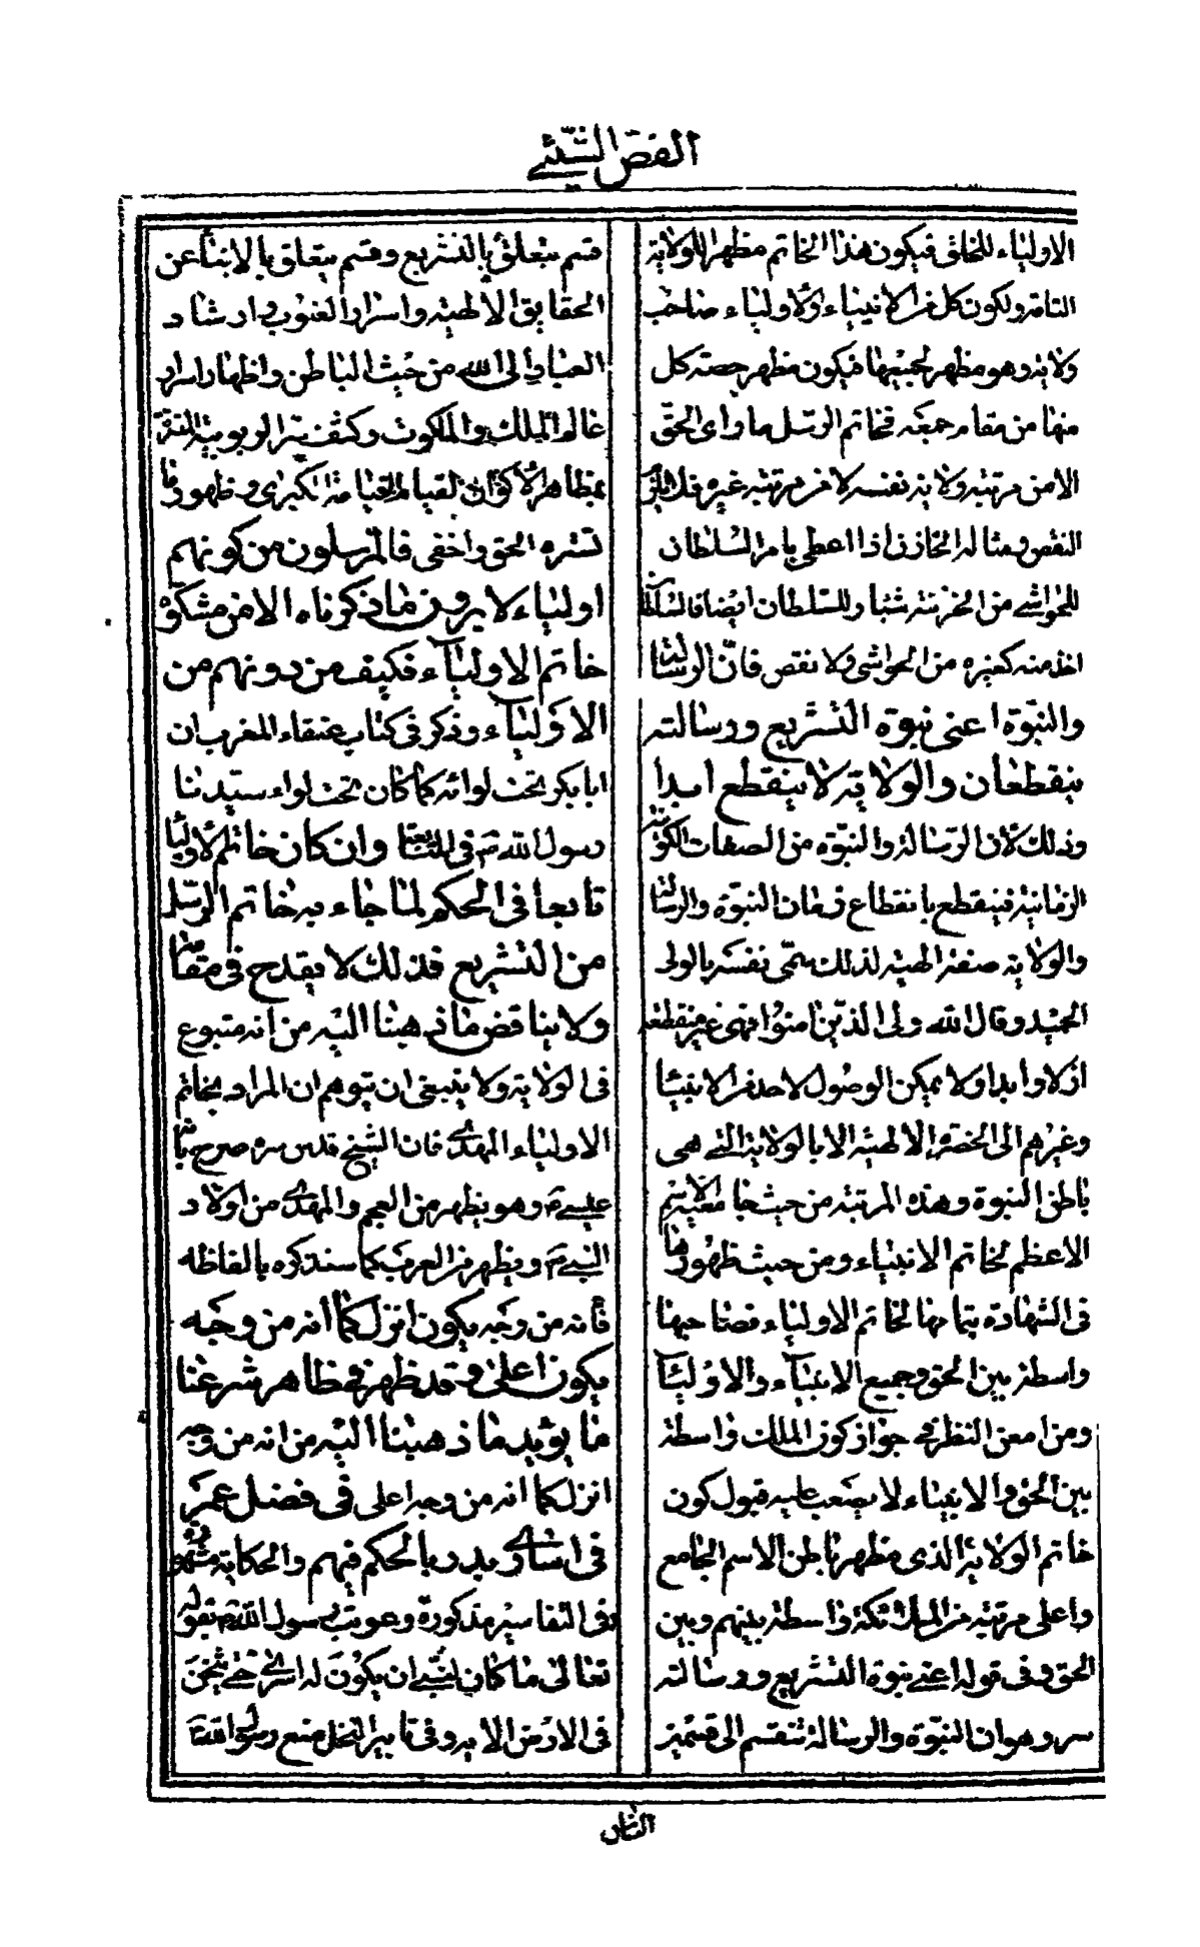 الفص الشيثي
الاولياء للخلق فيكون هذا الخاتم مظهرا للولاية
التامة ولكون كل من الانبياء والاولياء صاحب
ولاية وهو مظهر لجميعها فيكون مظهر حصته كل
منها من مقام جمعه فخاتم الرسل ما رأى الحق
الا من مرتبة ولاية نفسه لا من مرتبة غيره فلا يلزم
النقص ومثاله الخازن اذا اعطى بامر السلطان
للحواشي من الخزينة شيئا وللسلطان ايضا فالسلطان
اخذ منه كغيره من الحواشي ولا نقص فان الرسالة
والنبوة اعني نبوة التشريع ورسالته
ينقطعان والولاية لا ينقطع ابدا
وذلك لان الرسالة والنبوة من الصفات الكونية
الزمانية فينقطع بانقطاع زمان النبوة والرسالة
والولاية صفة الهية لذلك سمى نفسه بالولي
الحميد وقال الله ولي الذين امنوا فهي غير منقطعة
ازلا وابدا ولا يمكن الوصول لاحد من الانبياء
وغيرهم الى الحضرة الالهية الا بالولاية التي هي
باطن النبوة وهذه المرتبة من حيث جامعية الاسم
الاعظم لخاتم الانبياء ومن حيث ظهورها
فى الشهادة بتمامها لخاتم الاولياء فصاحبها
واسطة بين الحق وجميع الانبياء والاولياء
ومن امعن النظر في جواز كون الملك واسطة
بين الحق والانبياء لا يصعب عليه قبول كون
خاتم الولاية الذى مظهر باطن الاسم الجامع
واعلى مرتبة من الملائكة واسطة بينهم وبين
الحق وفى قوله اعني نبوة التشريع ورسالته
سر وهو ان النبوة والرسالة تنقسم الى قسمين
قسم يتعلق بالتشريع وقسم يتعلق بالانباء عن
الحقايق الالهية واسرار الغيوب وارشاد
العباد الى الله من حيث الباطن واظهار اسرار
عالم الملك والملكوت وكشف سر الربوبية
بمظاهر الاكوان لقيام القيامة الكبرى وظهور ما
تستره الحق واخفى فالمرسلون من كونهم
اولياء لا يرون ما ذكرناه الا من مشكوة
خاتم الاولياء فكيف من دونهم من
الاولياء وذكر فى كتاب عنقاء المغرب ان
ابا بكر تحت لوائه كما كان تحت لواء سيدنا
رسول الله ص فى وان كان خاتم الاولياء
تابعا فى الحكم لما جاء به خاتم الرسل
من التشريع فذلك لا يقدح فى مقامه
ولا يناقض ما ذهبنا اليه من انه متبوع
فى الولاية ولا ينبغى ان يتوهم ان المراد بخاتم
الاولياء المهدي فان الشيخ قدس سره صرح بانه
عيسى ع وهو يظهر من العجم والمهدي من اولاد
النبي ص ويظهر من العرب كما سنذكره بالفاظه
فانه من وجه يكون انزل كما انه من وجه
يكون اعلى وقد ظهر في ظاهر شرعنا
ما يؤيد ما ذهبنا اليه من انه من وجه
انزل كما انه من وجه اعلى فى فضل عمر
فى اسارى بدر بالحكم فيهم والحكاية مشهورة
وفى التفاسير مذكورة وعوتب رسول الله ص بقوله
تعالى ما كان لنبي ان يكون له اسرى حتى يثخن
فى الارض الاية وفى تابير النخل منع رسول الله
الناس